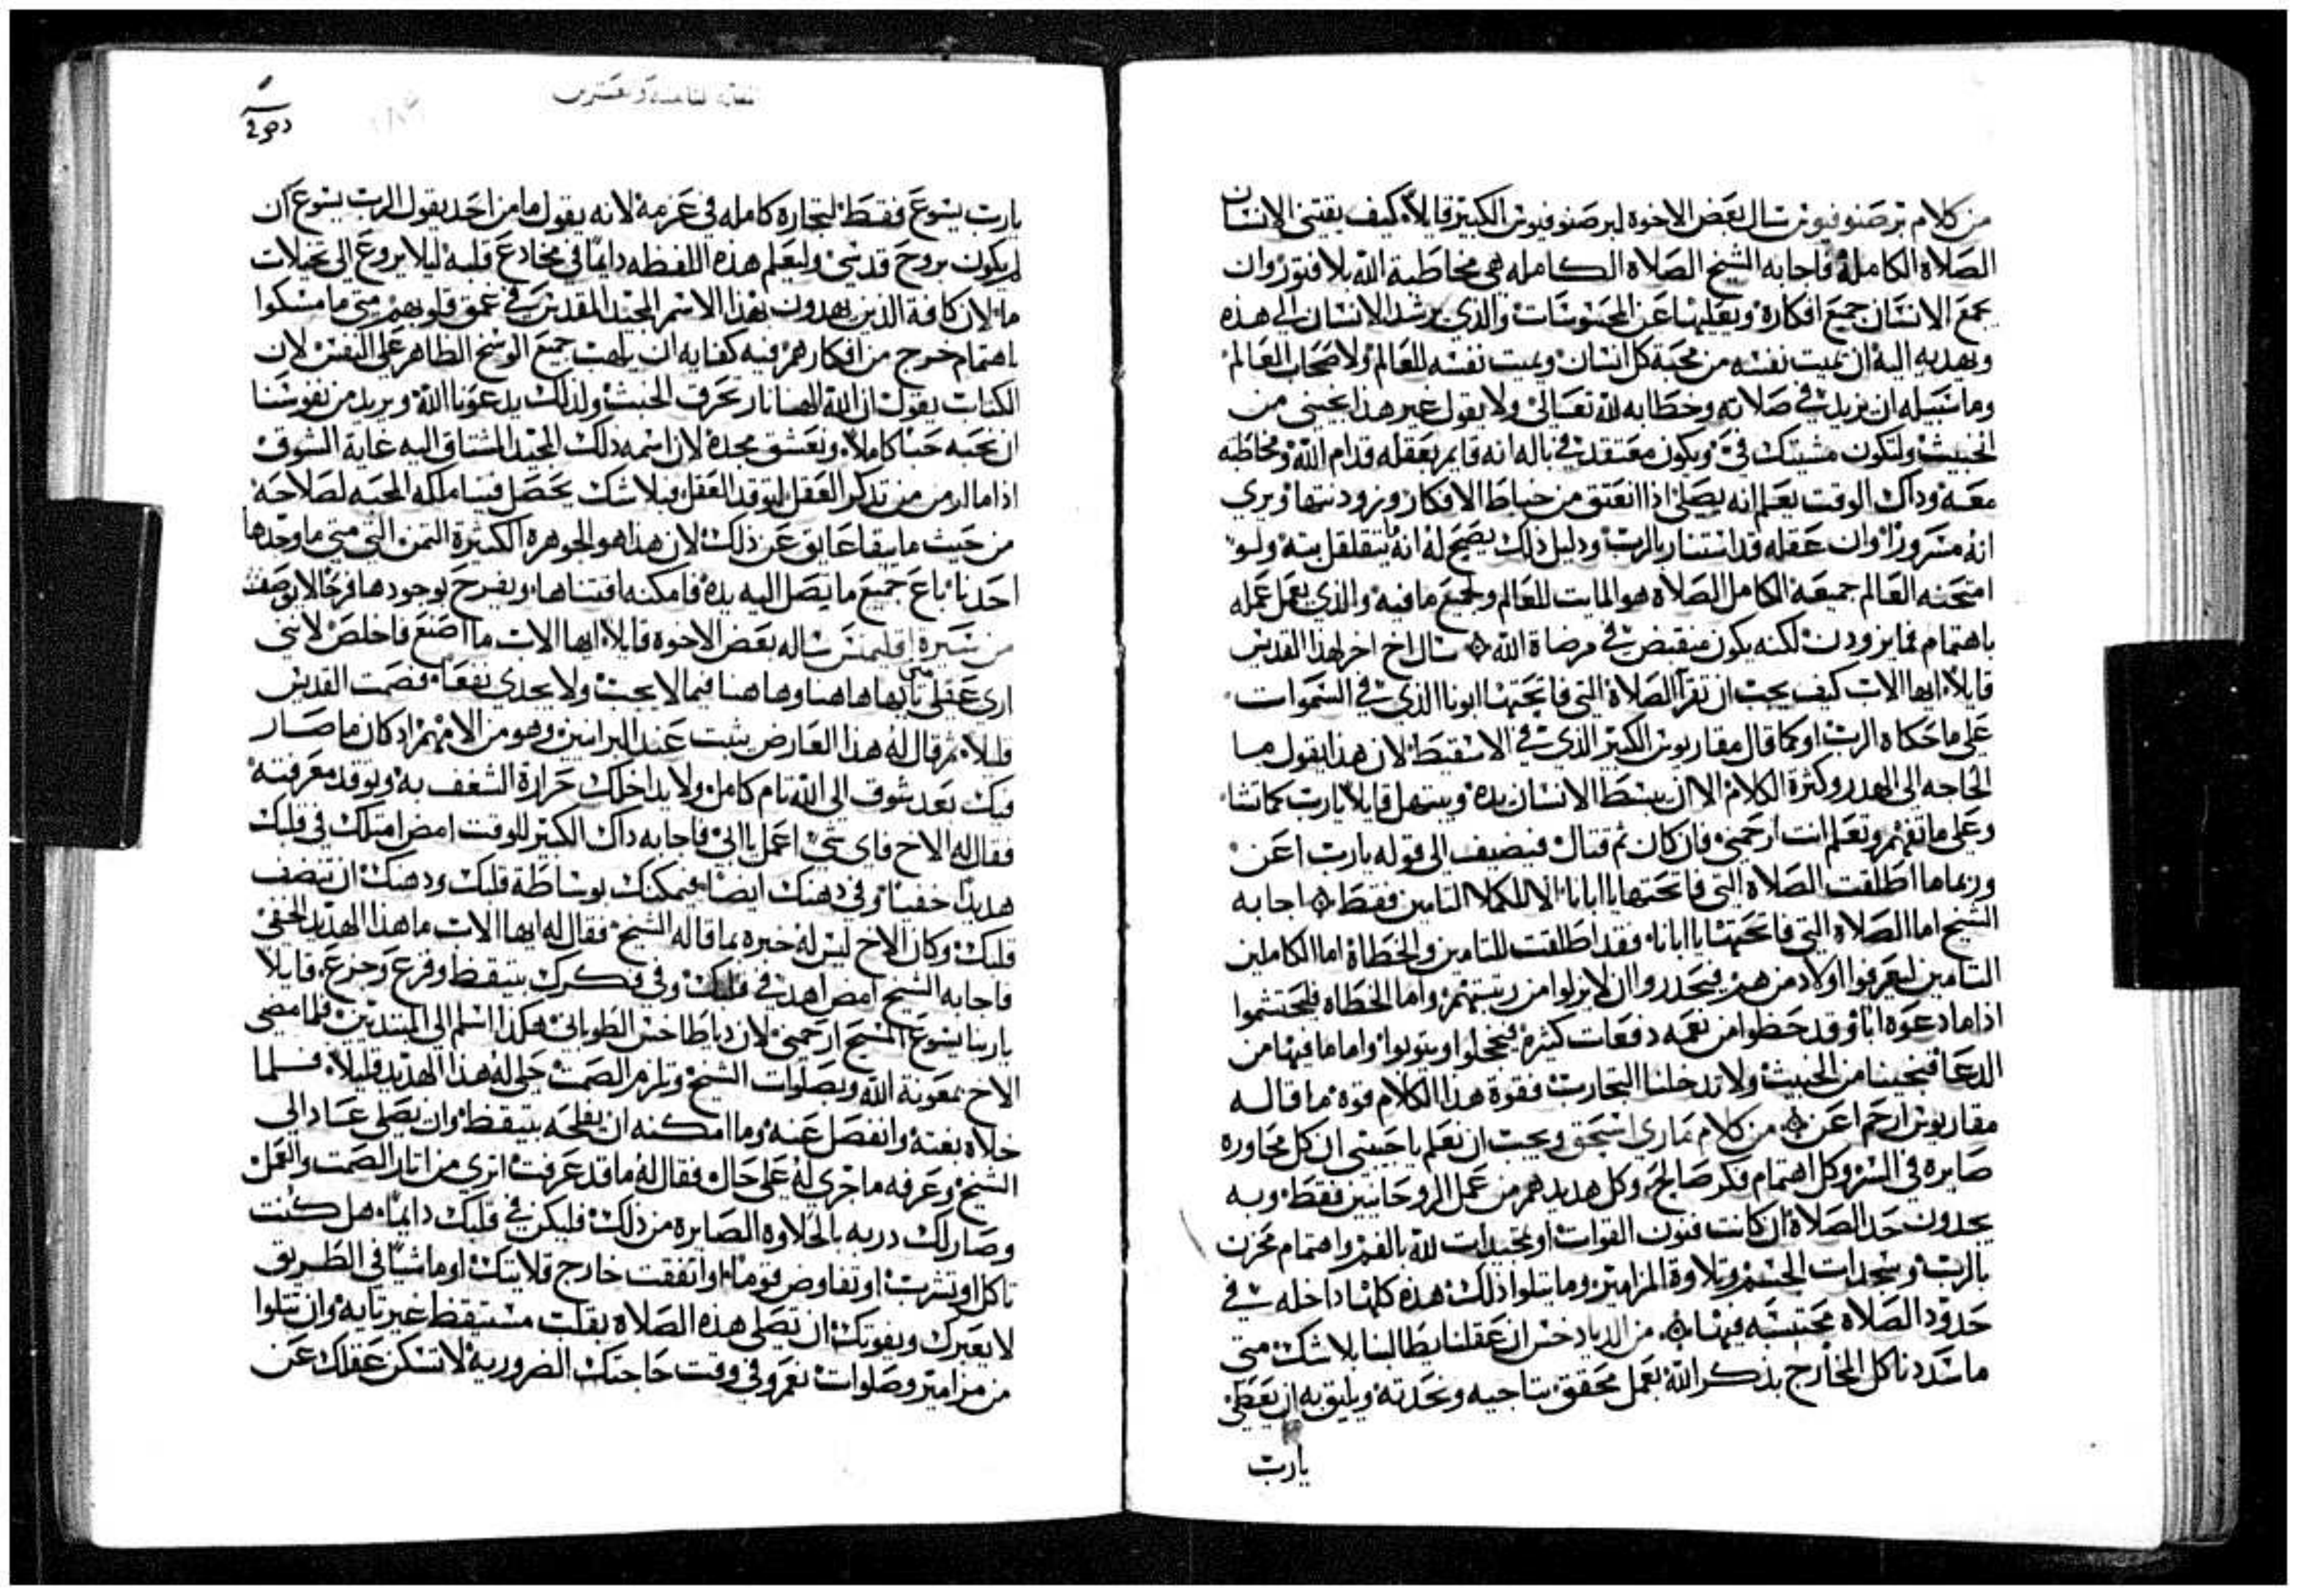 من كلام برصنوفيوس سال بعض الاخوه لبرصنوفيوس الكبير قايلاً كيف يقتني الانسان
الصلاة الكامله فاجابه الشيخ الصلاه الكامله هي مخاطبة الله بلا فتور وان
يجمع الانسان جميع افكاره ويقليها عن المحسوسات والذي يرشد الانسان الى هذه
ويهديه اليه ان يميت نفسه من محبة كل انسان ويميت نفسه للعالم ولاصحاب العالم
وما سبيله ان يزيد في صلاته وخطابه لله تعالى ولا يقول غير هذا نجيني من
الخبيث ولتكون مشيتك فيّ ويكون معتقد في باله انه قايم بعقله قدام الله ومخاطبه
معه وداك الوقت يعلم انه يصلي اذا انعتق من خباط الافكار ونزود نتها ويري
انه مسروراً وان عقله قد استنار بالرب ودليل ذلك يصح له انه ما يتقلقل بته ولو
امتحنه العالم جميعه الكامل الصلاه هو المايت للعالم ولجميع ما فيه والذي يعمل عمله
باهتمام فما يزودن لكنه يكون منقبض في مرضاة الله سال اخ اخر لهذا القديس
قايلاً ايها الاب كيف يجب ان تقرا الصلاة التي فاتحتها ابونا الذي في السموات
على ما حكاه الرب او كما قال مقاريوس الكبير الذي في الاسقيط لان هذا يقول ما
الحاجه الى الهدر وكثرة الكلام الا ان يبسط الانسان يده ويبتهل قايلاً يارب كما تشا
وعلى ما تفهم وتعلم انت ارحمني فان كان ثم قتال فيضيف الى قوله يارب اعن
وربما ما اطلقت الصلاه التي فاتحتها يا ابانا الا للكملا التامين فقط اجابه
الشيخ اما الصلاه التي فاتحتها يا ابانا فقد اطلقت للتامين والخطاة اما الكاملين
التامين ليعرفوا اولاد من هم فيحدروا ان لا يزلوا من ربيتهم واما الخطاه فليحتشموا
اذا ما دعوه ابًا وقد حظوا من نعمه دفعات كثيره فيخجلوا ويتوبوا واما ما فيها من
الدعا فنجينا من الخبيث ولا تدخلنا التجارب فقوة هذا الكلام قوة ما قاله
مقاريوس ارحم اعن من كلام ماري اسحق ويجب ان نعلم يا حبيبي ان كل محاوره
صابره في السر وكل اهتمام فكر صالح وكل هديد هم من عمل الروحانيين فقط وبه
يحدون حد الصلاة ان كانت فنون القوات او تمجيدات لله بالفم واهتمام محزن
بالرب وسجدات الجسم وتلاوة المزامير وما يتلوا ذلك هذه كلها داخله في
حدود الصلاه محتسبه فيها من الدياد خس ان عقلنا يطالبنا بلا شك متى
ما سددنا كل المخارج بذكر الله بعمل محقق يناجيه ونحدته ويليق به ان يعطي
يارب
يارب يسوع فقط لتجاره كامله في عزمه لانه يقول ما من احد يقول الرب يسوع ان
لم يكون بروح قدسي وليعلم هذه اللفظه دايمًا في مخادع قلبه ليلا يروغ الى تخيلات
ما لان كافة الذين يهدون بهذا الاسم المجيد المقدس في عمق قلوبهم متى ما مسكوا
باهتمام خرج من افكارهم فيه كفايه ان يلهب جميع الوسخ الظاهر على النفس لان
الكتاب يقول ان الله الهنا نار تحرق الخبث ولذلك يدعونا الله ويريد من نفوسنا
ان نحبه حباً كاملاً ونعشق مجده لان اسمه ذلك المجيد المشتاق اليه غاية الشوق
اذا ما الزمن من تذكر العقل لتوقد العقل فبلا شك يحصل فينا ملكه المحبه لصلاحه
من حيث ما يبقا عايق عن ذلك لان هذا هو الجوهره الكثيرة الثمن التي متى ما وجدها
احدنا باع جميع ما يصل اليه يده فامكنه اقتناها ويفرح بوجودها فرحًا لا يوصف
من سيرة اقليمس ساله بعض الاخوه قايلاً ايها الاب ما اصنع فاخلص لانني
ارى عقلي تايها هاهنا وهاهنا فيما لا يجب ولا يجدي نفعًا فصمت القديس
قليلاً ثم قال له هذا العارض يثبت عند البرانيين وهو من الام مهم اد كان ما صار
فيك بعد شوق الى الله تام كامل ولا يداخلك حرارة الشغف به وتوقد معرفته
فقال له الاخ فاي شي اعمل يا ابي فاجابه داك الكبير للوقت امض امتلك في قلبك
هديدًا خفيًا وفي دهنك ايضًا فيمكنك بوساطة قلبك ودهنك ان تنضف
قلبك وكان الاخ ليس له خبره بما قاله الشيخ فقال له ايها الاب ما هذا الهديد الخفي
فاجابه الشيخ امض اهد في قلبك وفي فكرك بتيقظ وفزع وجزع قايلاً
يا ربنا يسوع المسيح ارحمني لان دياطاخس الطوباني هكذا اسلم الى المبتديين فلما مضى
الاخ بمعونة الله وبصلوات الشيخ ولزم الصمت حلى له هذا الهديد قليلاً فلما
خلاه بغته وانفصل عنه وما امكنه ان يفلحه بتيقظ وان يصلي عاد الى
الشيخ وعرفه ما جرى له على حال فقال له ما قد عرفت اتري من اتار الصمت والعمل
وصار لك دربه بالحلاوه الصابره من ذلك فليكن في قلبك دايمًا هل كنت
تاكل او تشرب او تفاوض قومًا او اتفقت خارج قلايتك او ماشيًا في الطريق
لا يعبرك ويفوتك ان تصلي هذه الصلاه بقلب مستيقظ غير تايه وان تتلوا
من مزامير وصلوات نعم وفي وقت حاجتك الضروريه لا تسكن عقلك عن